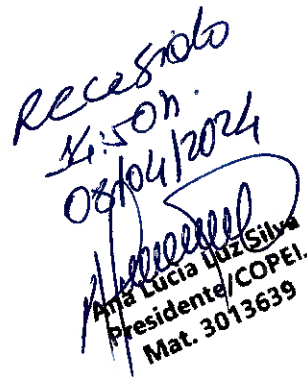 Recebido
14:50h.
08/04/2024
Ana Lucia Luz Silva
Presidente/COPEL.
Mat. 3013639